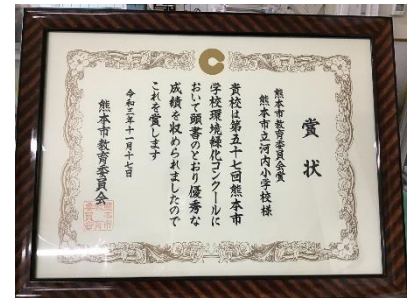 賞状
熊本市教育委員会賞
熊本市立河内小学校様
貴校は第五十七回熊本市
学校環境緑化コンクールに
おいて頭書のとおり優秀な
成績を収められましたので
これを賞します
令和三年十一月十七日
熊本市教育委員会